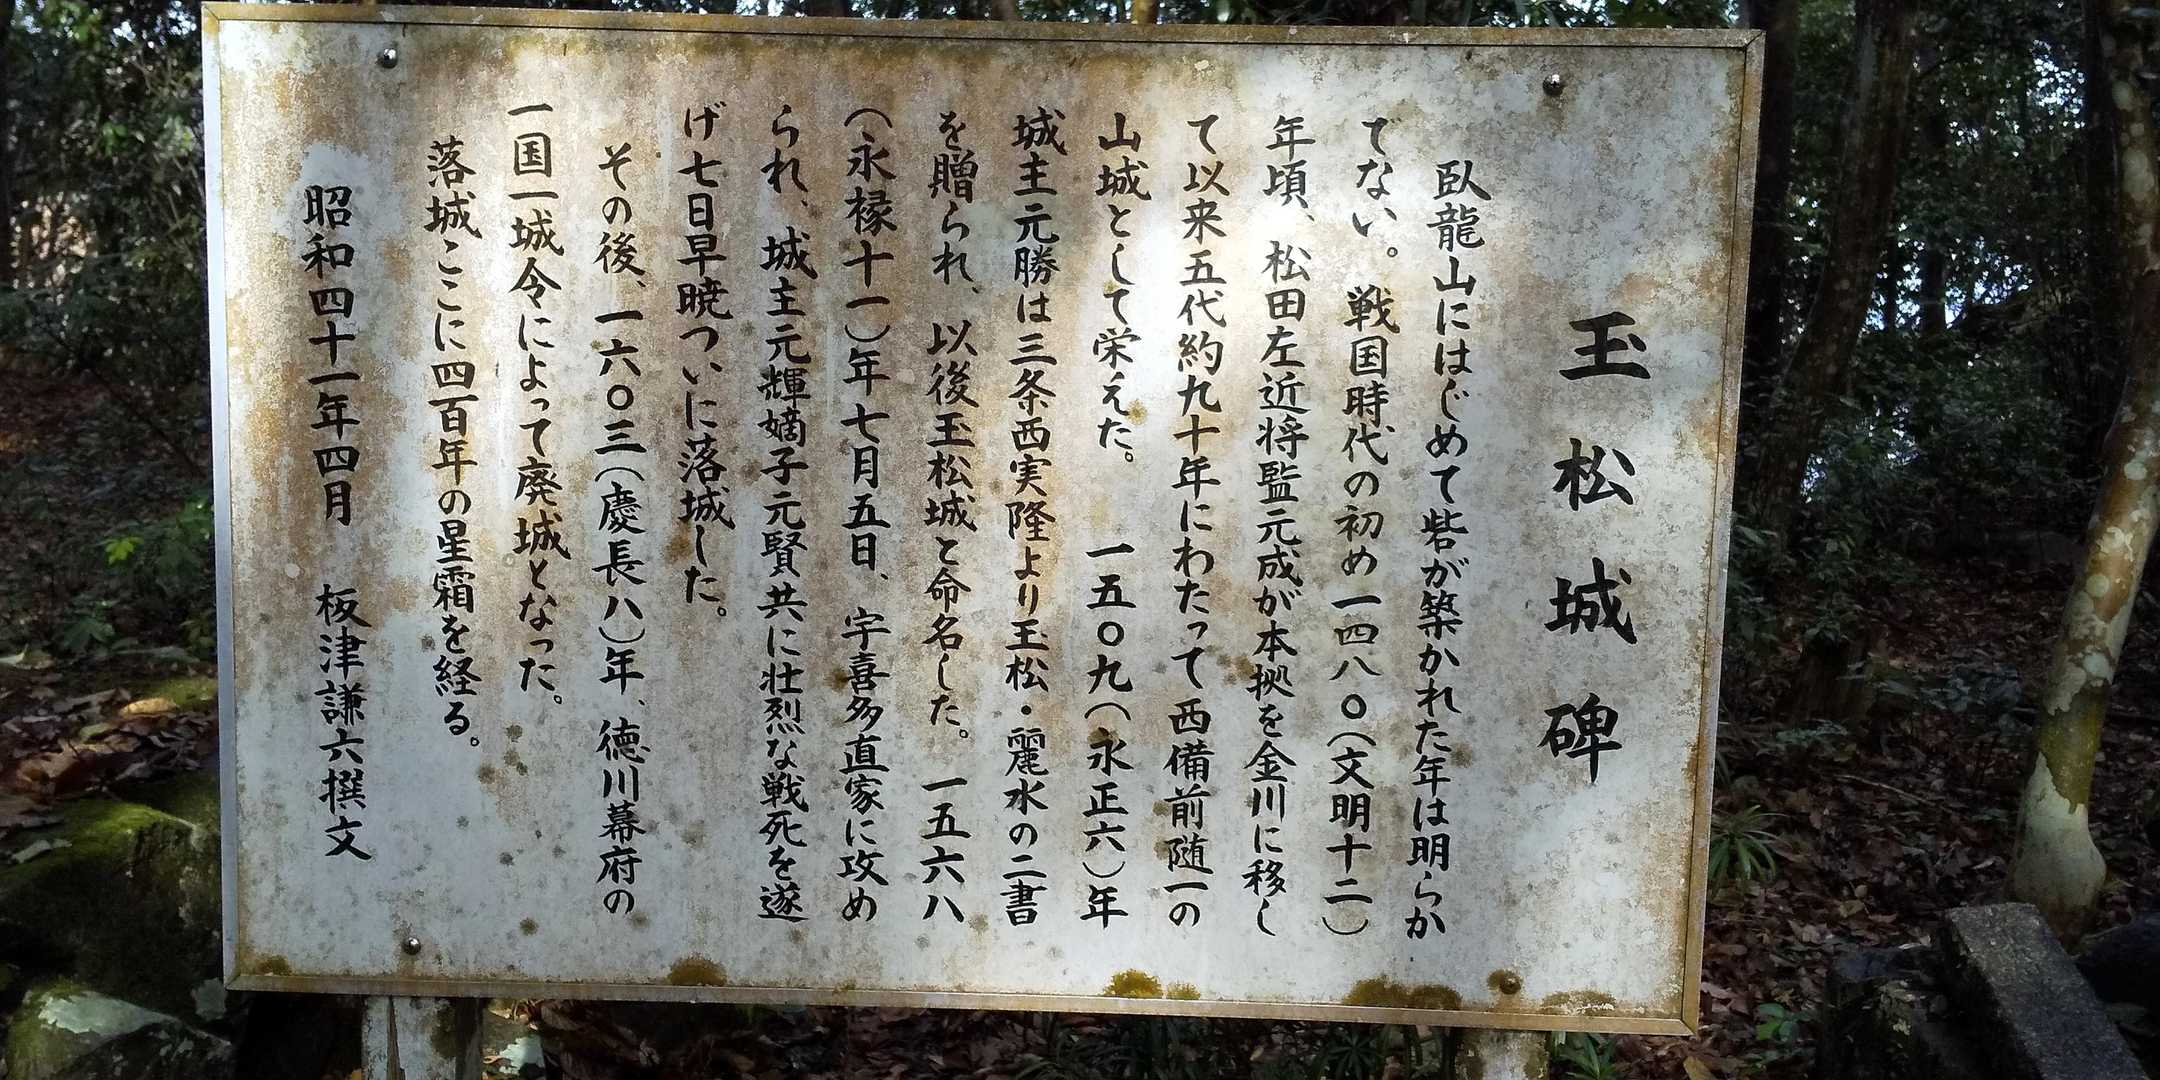 玉松城碑
臥龍山にはじめて砦が築かれた年は明らか
でない。戦国時代の初め一四八〇(文明十二)
年頃、松田左近将監元成が本拠を金川に移し
て以来五代約九十年にわたって西備前随一の
山城として栄えた。　一五〇九(永正六)年
城主元勝は三条西実隆より玉松・麗水の二書
を贈られ、以後玉松城と命名した。一五六八
(永禄十一)年七月五日、宇喜多直家に攻め
られ、城主元輝嫡子元賢共に壮烈な戦死を遂
げ七日早暁ついに落城した。
その後、一六〇三(慶長八)年、徳川幕府の
一国一城令によって廃城となった。
落城ここに四百年の星霜を経る。
昭和四十一年四月　板津謙六撰文